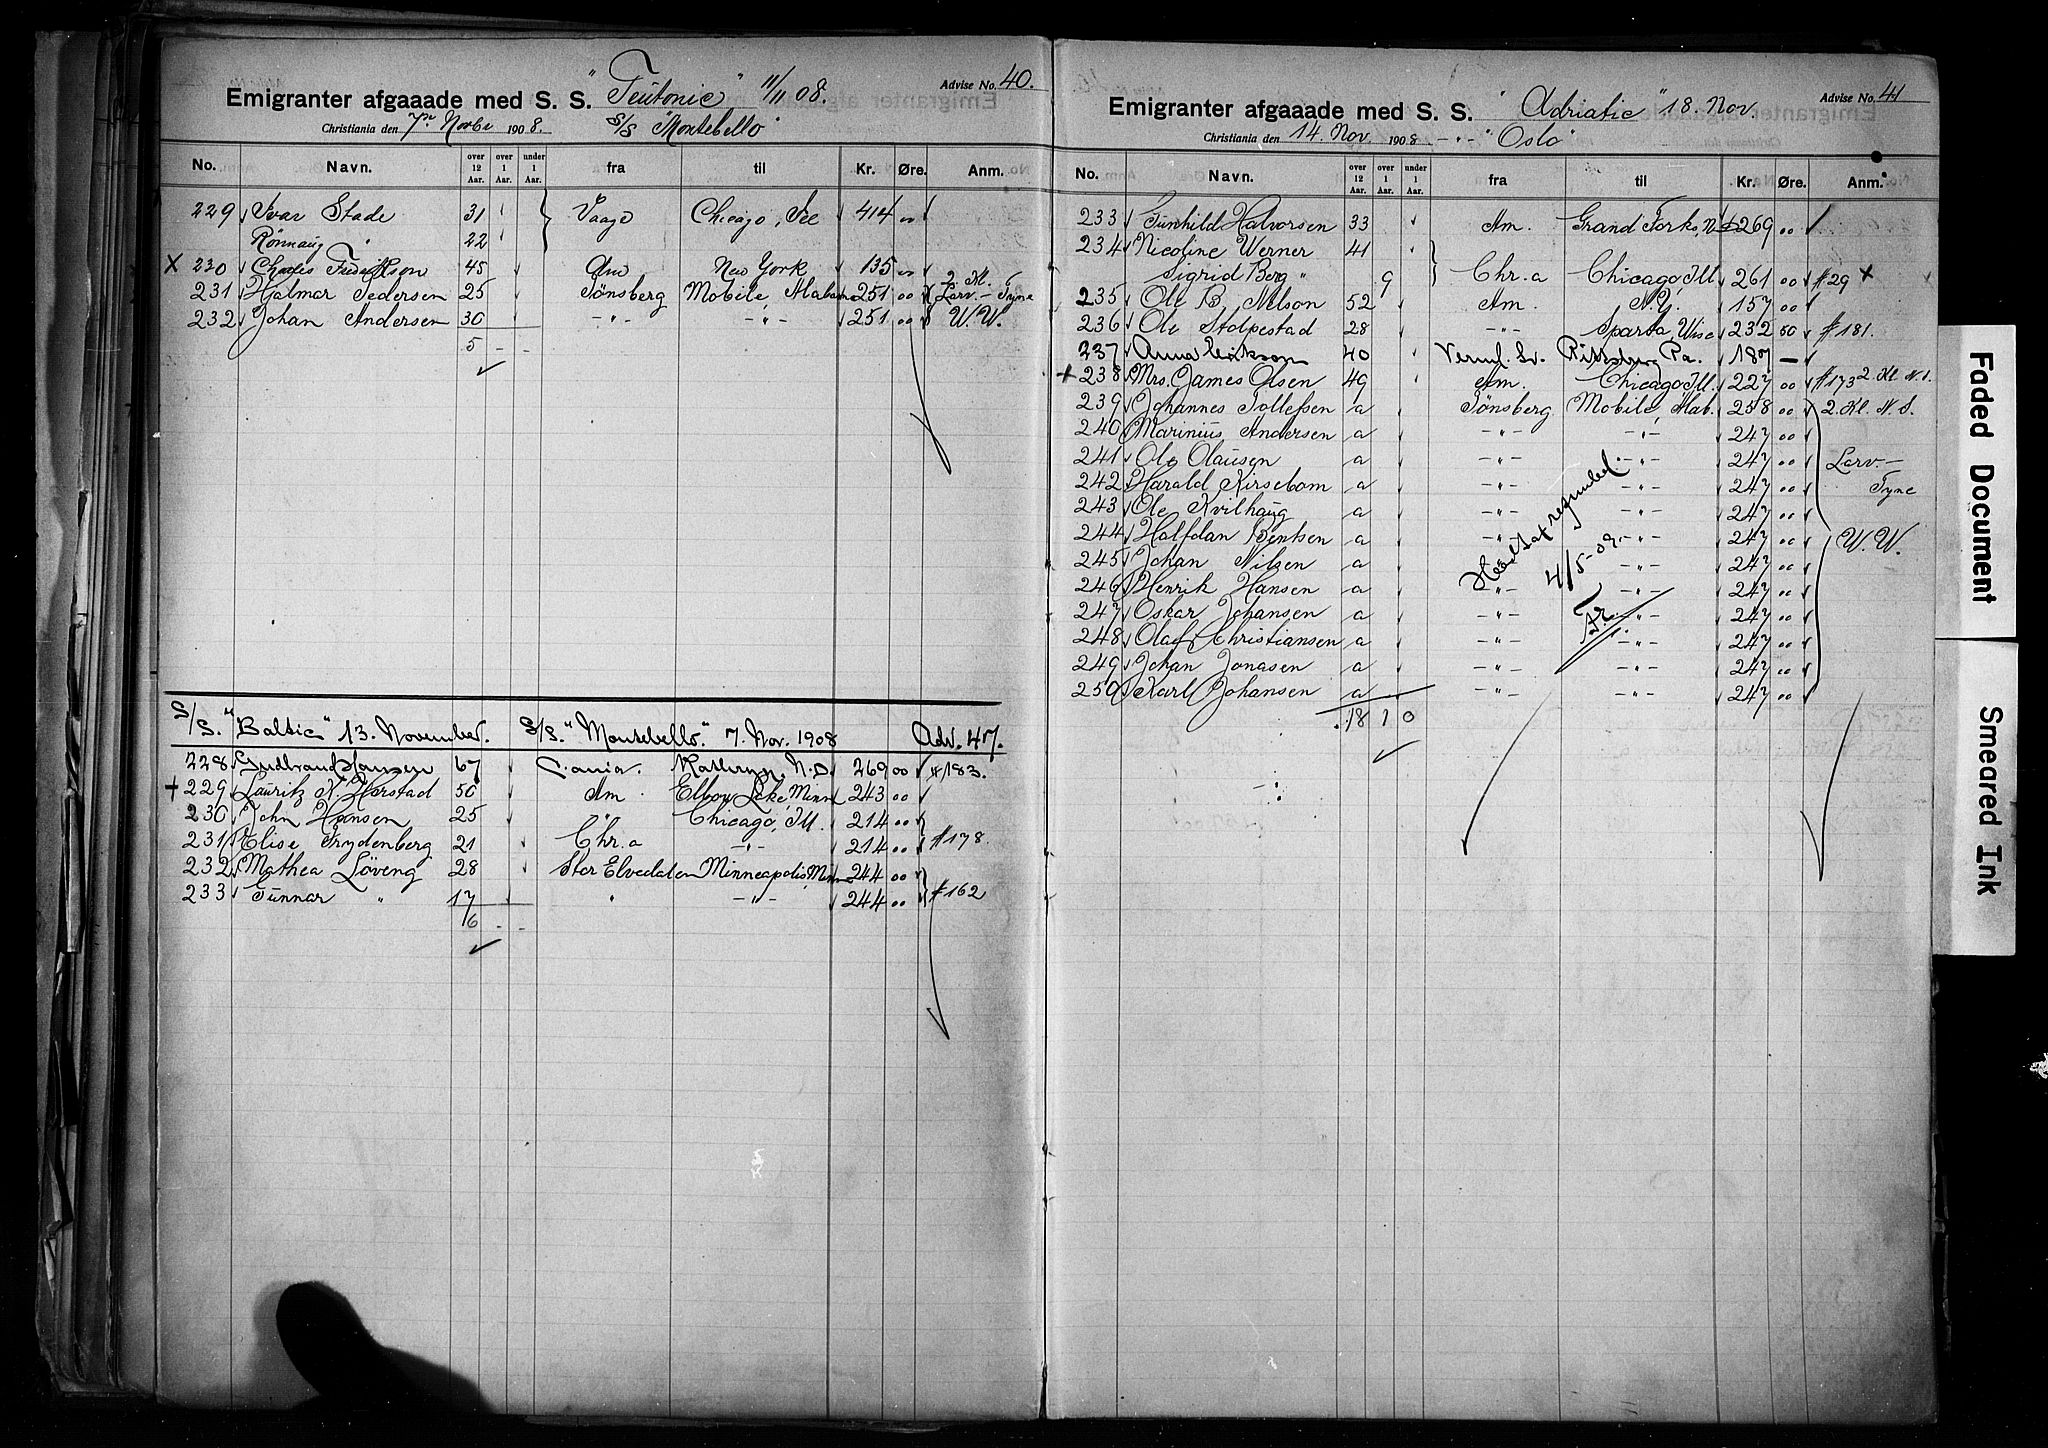 Emigranter afgaaade med S. S. "Teutonic" 11/11 08. Advise No. 40.
Christiania den 7de Novbr 1908. S/S "Montebello"
No. Navn. over 12 Aar. over 1 Aar. under 1 Aar. fra til Kr. Øre. Anm.
229 Ivar Stade 31 Vaage Chicago, Ill 414 00
Rønnaug " 22
X 230 Charles Fredriksen 45 Am New York 135 00
231 Hjalmar Pedersen 25 Tønsberg Mobile, Alabama 251 00 2 Kl. Larv.- Tyne
232 Johan Andersen 30 -"- -"- 251 00 W. W.
5 - -
S/S. "Baltic" 13. November. S/S. "Montebello." 7. Nov. 1908 Adv. 47.
228 Gudbrand Hansen 67 N.D. 269 00 # 183.
+ 229 Lauritz K. Harstad 50 Am Elbow Lake, Minn 243 00
230 John Hansen 25 " Chicago, Ill. 214 00
231 Elise Frydenberg 21 Chr.a -"- 214 00 # 178.
232 Mathea Løveng 28 Stor Elvedalen Minneapolis, Minn 244 00
233 Gunnar " 17 " -"- 244 00 # 162
6 - -
Emigranter afgaaade med S. S. "Adriatic" 18. Nov. Advise No. 41
Christiania den 14. Nov. 1908 -"- "Oslo"
No. Navn. over 12 Aar. over 1 Aar. under 1 Aar. fra til Kr. Øre. Anm.
233 Gunhild Halvorsen 33 Am. Grand Forks, N.D. 269 00
234 Nicoline Werner 41
Sigrid Berg " 9 Chr.a Chicago, Ill 261 00 # 29 X
235 Ole B. Nelson 52 Am. N.Y. 157 00
236 Ole Stolpestad 28 -"- Sparta Wisc 232 50 # 181.
237 Anna Erikson 40 Verml. Sv. Pittsburg Pa. 187 —
+ 238 Mrs. James Olsen 49 Am. Chicago, Ill. 227 00 # 173 2. Kl. N.S.
239 Johannes Tollefsen a Tønsberg Mobile, Alab. 258 00 2. Kl. N. S.
240 Marinius Andersen a -"- -"- 247 00
241 Ole Olausen a -"- -"- 247 00 Larv.-
242 Harald Kirsebom a -"- -"- 247 00 Tyne
243 Ole Kvilhaug a -"- -"- 247 00
244 Halfdan Bentsen a -"- -"- 247 00 W. W.
245 Johan Nilsen a -"- 247 00
246 Henrik Hansen a -"- -"- 247 00
247 Oskar Johansen a -"- -"- 247 00
248 Olaf Christiansen a -"- -"- 247 00
249 Johan Jonasen a -"- -"- 247 00
250 Karl Johansen a -"- -"- 247 00
18 1 0
4/5-09
Faded Document
Smeared Ink